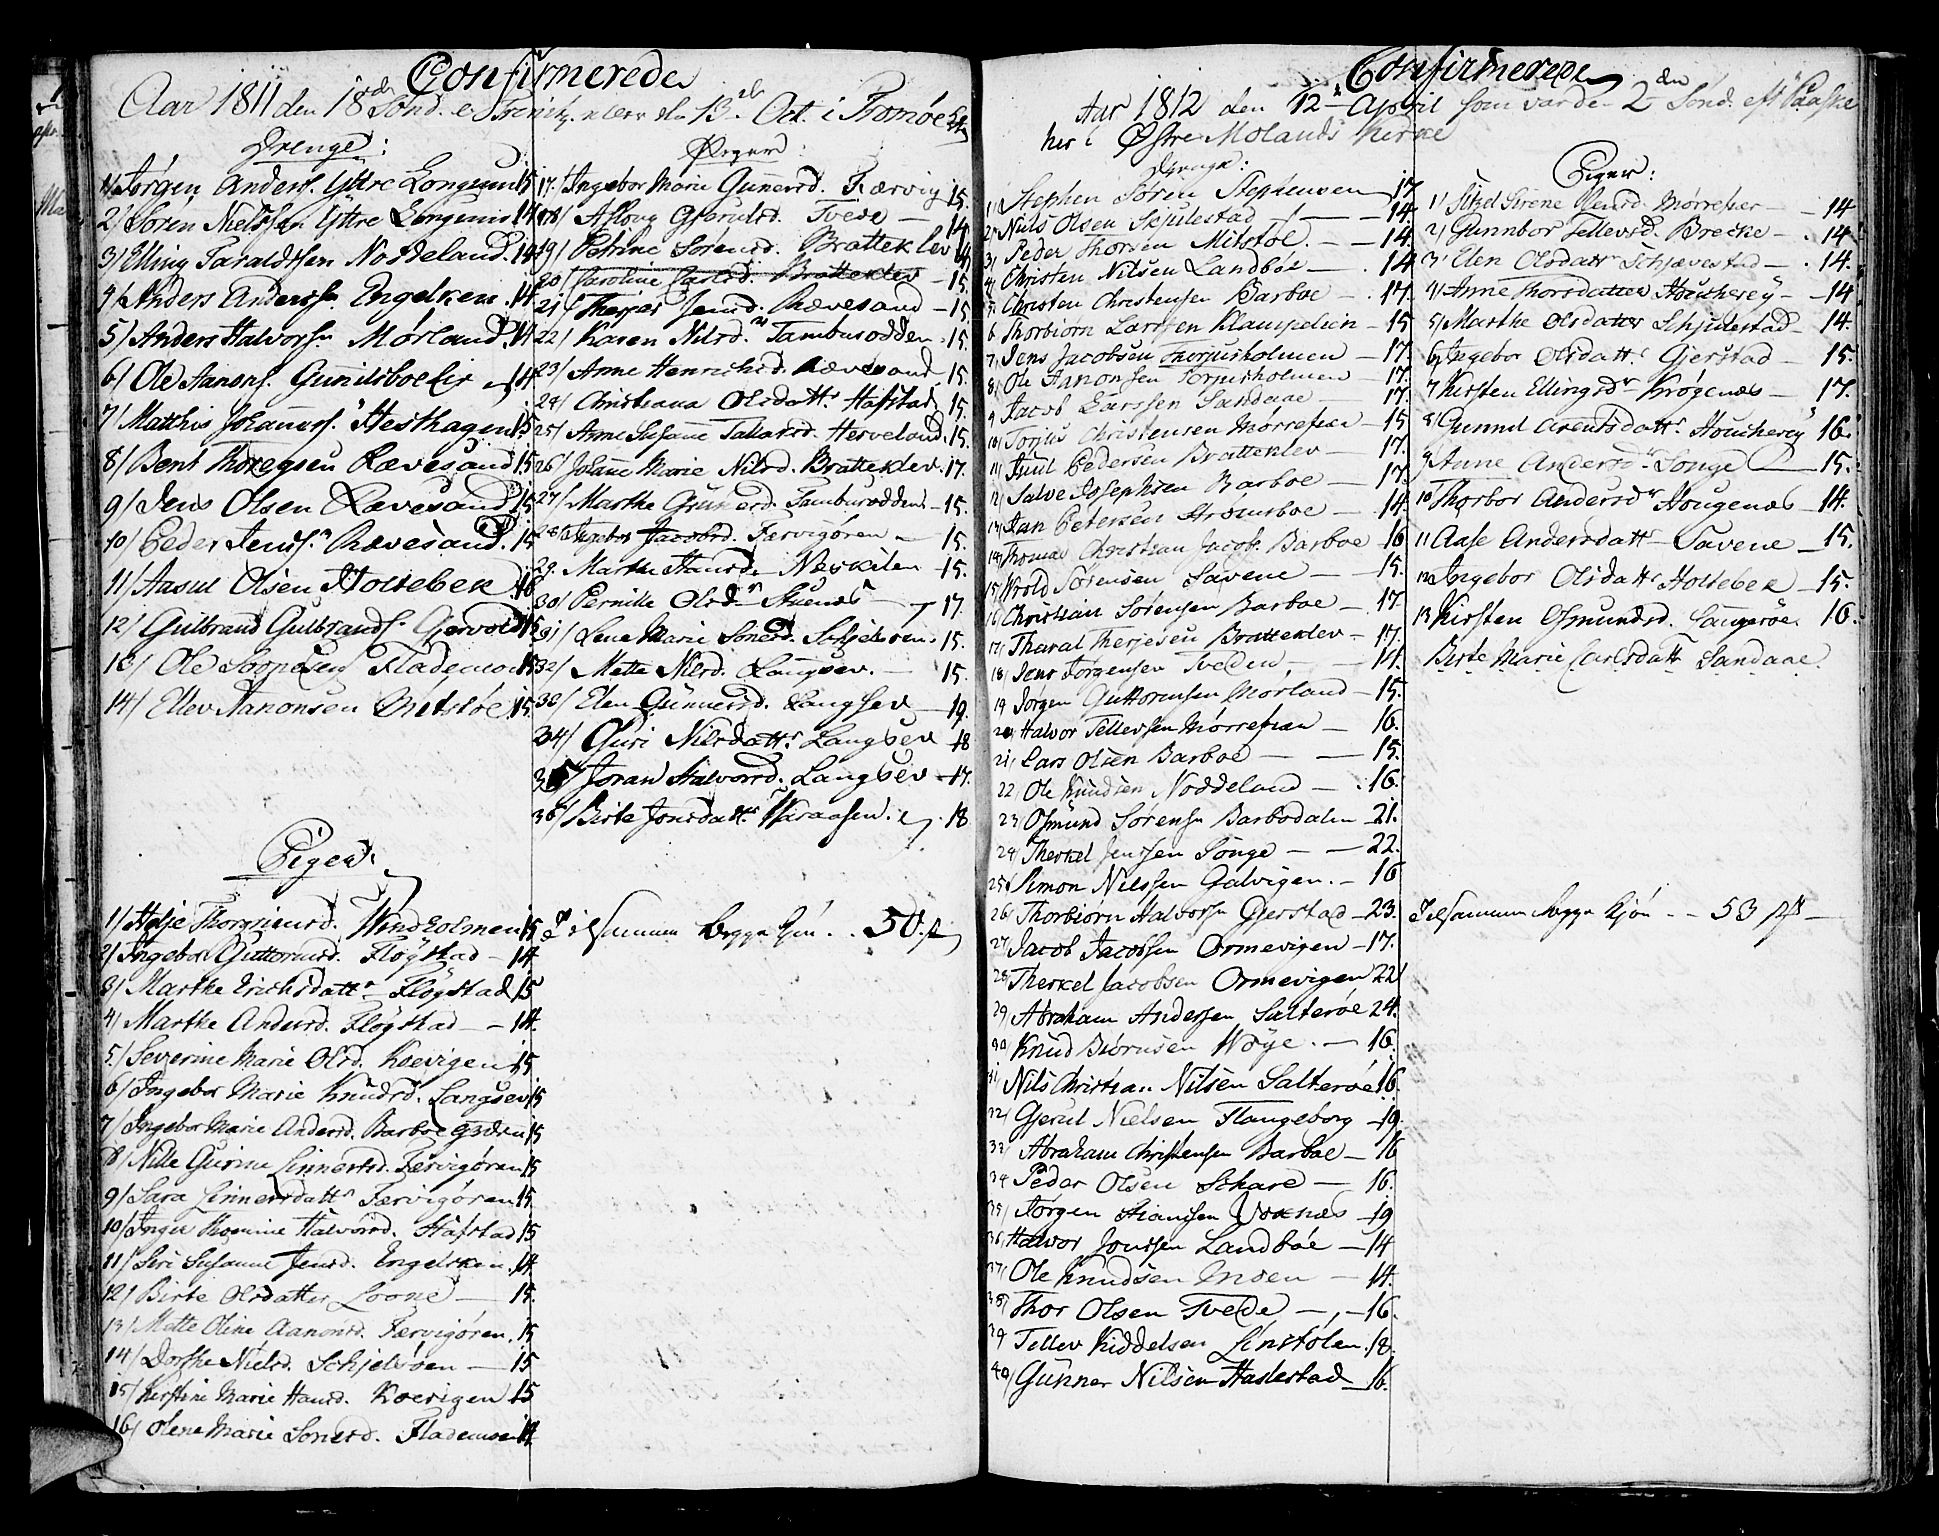 Confirmerede
Aar 1811 den 18de Sönd. e. Trinit. den 13de Oct. i Tromøe
Drenge:
1/ Jørgen Anders. Yttre Longum 15
2/ Sören Nielssen Yttre Longum 14
3/ Elling Taraldssen Noddeland 14
4/ Anders Anderss. Engelken 14
5/ Anders Halvors. Mørland 14
6/ Ole Aanons. 14
7/ Matthis Johanness. Hesthagen 15
8/ Bent Thoregsen Rævesand 15
9/ Jens Olsen Rævesand 15
10/ Peder Jenss. Rævesand 15
11/ Aasul Olsen Holtebek 16
12/ Gulbrand Gulbrands. Gjervold 15
13/ Ole Flademoen 15
14/ Ellev Aanonsen Mitstöe 15
Piger:
1/ Thorgrimsd. Windholmen 15
2/ Ingebor Guttormsd. Flögstad - 14
3/ Marthe Erichsdattr. Flögstad 15
4/ Marthe Andersd. Flögstad - 14
5/ Severine Marie Olsd. Koevigen 15
6/ Ingebor Marie Knudsd. Langsev 15
7/ Ingebor Marie Andersd. Barboe 15
8/ Nille Gurine Linnertsd. Færvigøren 15
9/ Sara Linnertsdattr. Færvigøren 15
10/ Inger Halvorsd. Hafstad 15
11/ Siri Susanne Jensd. Engelken 14
12/ Birte Olsdatter Loone - 15
13/ Mette Oline Aanonsd. Færvigøren 15
14/ Dorthe Nielsd. Schjelsöen - 15
15/ Kirstine Marie Hansd. Koevigen 15
16/ Olene Marie Sörensd. Flademoen 14
Piger:
17/ Ingebor Marie Gunnersd. Færvig 15
18/ Asloug Gjeruldsd. Tvede - 14
19/ Petrine Sörensd. Bratteklev 14
20/ Caroline Carlsd. Bratteklev - 15
21/ Jensd. Rævesand - 15
22/ Karen Nilsd. Tambursodden 15
23/ Anne Henrichsd. Rævesand 15
24/ Christiana Olsdattr. Hafstad 15
25/ Anne Susanne Tallaksd. Herveland 15
26/ Johanne Marie Nilsd. Bratteklev 17
27/ Marthe Gunnersd. Tambursodden - 15
28/ Ingebor Jacobsd. Færvigøren - 15
29. Marthe Hansd. Neskilen 15
30/ Pernille Olsd. Stuenes - 17
31/ Lene Marie Sörensd. Schjelsöen 15
32/ Mette Nilsd. Langsev. - 15
33/ Elen Gunnersd. Langsev - 19
34/ Guri Nilsdattr. Langsev 18
35/ Joran Halvorsd. Langsev - 17
36/ Birte Jonsdattr. 18
Tilsammen begge Kjön .. 50 p
Confirmerede
Aar 1812 den 12te April som var de 2den Sönd. eft. Paaske
her i Østre Molands Kirke
Drenge:
1/ Stephen Sören Stephensen 17
2/ Niels Olsen Skjulestad - - 14
3/ Peder Thorsen Mitstøl. - - 14
4/ Christen Nilsen Landböe - 14
5. Christen Christensen Barboe - 17
6 Thorbiörn Larssen Klampelien - 15
7/ Jens Jacobsen Thorjusholmen - 17
8/ Ole Aanonsen Torjusholmen - 17
9 Jacob Larssen Sandaae - 17
10/ Torjus Christensen Mørrefiær - 15
11/ Juul Pedersen Bratteklev - 17
12/ Salve Josephsen Barboe - 17
13/ Jan Petersen Strömsboe - 14
14/ Thomas Christian Jacobs. Barboe 16
15/ Wrold Sörensen Savene - 15
16/ Christian Sörensen Barboe - 17
17/ Tharal Therjesen Bratteklev - 17
18/ Jens Jörgensen Tveden - 14
19 Jørgen Guttormsen Mørland - 15
20/ Halvor Tellevsen Mørrefiær - 16
21/ Lars Olsen Barboe - - 15
22/ Ole Knudsen Noddeland - 16
23/ Osmund Sørensen Barbodalen - 21
24/ Therkel Jenssen Songe - - 22
25/ Simon Nielssen Galvigen. - 16
26/ Thorbiörn Halvorss Gjerstad - 23
27/ Jacob Jacobsen Ormevigen - 17
28/ Therkel Jacobsen Ormevigen 22
29/ Abraham Andersen Salterøe 24
30/ Knud Biörnsen Woye. - 16
31 Nils Christian Nilsen Salterøe 16
32/ Gjerul Nielsen Flangeborg - 19
33/ Abraham Christensen Barboe - 16
34 Peder Olsen Schare - 16
35/ Jørgen Hansen Voxnæs - 19
36/ Halvor Jonssen Landböe - 14
37/ Ole Knudsen Moen - 14
38/ Thor Olsen Tvede - 16
39 Tellev Kiddelsen Linstølen 18
40/ Gunner Nilsen Haslestad 16
Piger:
1/ Sitzel Sirene Jensd. Mørrefiær - 14
2/ Gunnbor Tellevsd. Brekke - 14
3/ Elen Olsdattr. Schjævestad - 14
4/ Anne Thorsdatter Houcherey - 14
5/ Marthe Olsdatter Schjulestad - 14
6/ Ingebor Olsdattr. Gjerstad - 15
7 Kirsten Ellingsdr. Krøgenæs - 17
8/ Gunnil Arentsdattr. Houcherey 16
9 Anne Andersdr. Songe - 15
10 Thorbor Andersdr. Hougenæs - 14
11 Aase Andersdattr. Savene - 15
12 Ingebor Olsdattr. Holtebek - 15
13 Kirsten Osmundsd. Langerøe. 16
Birte Marie Carlsdattr. Sandaae.
Tilsammen begge Kjön - - 53 p